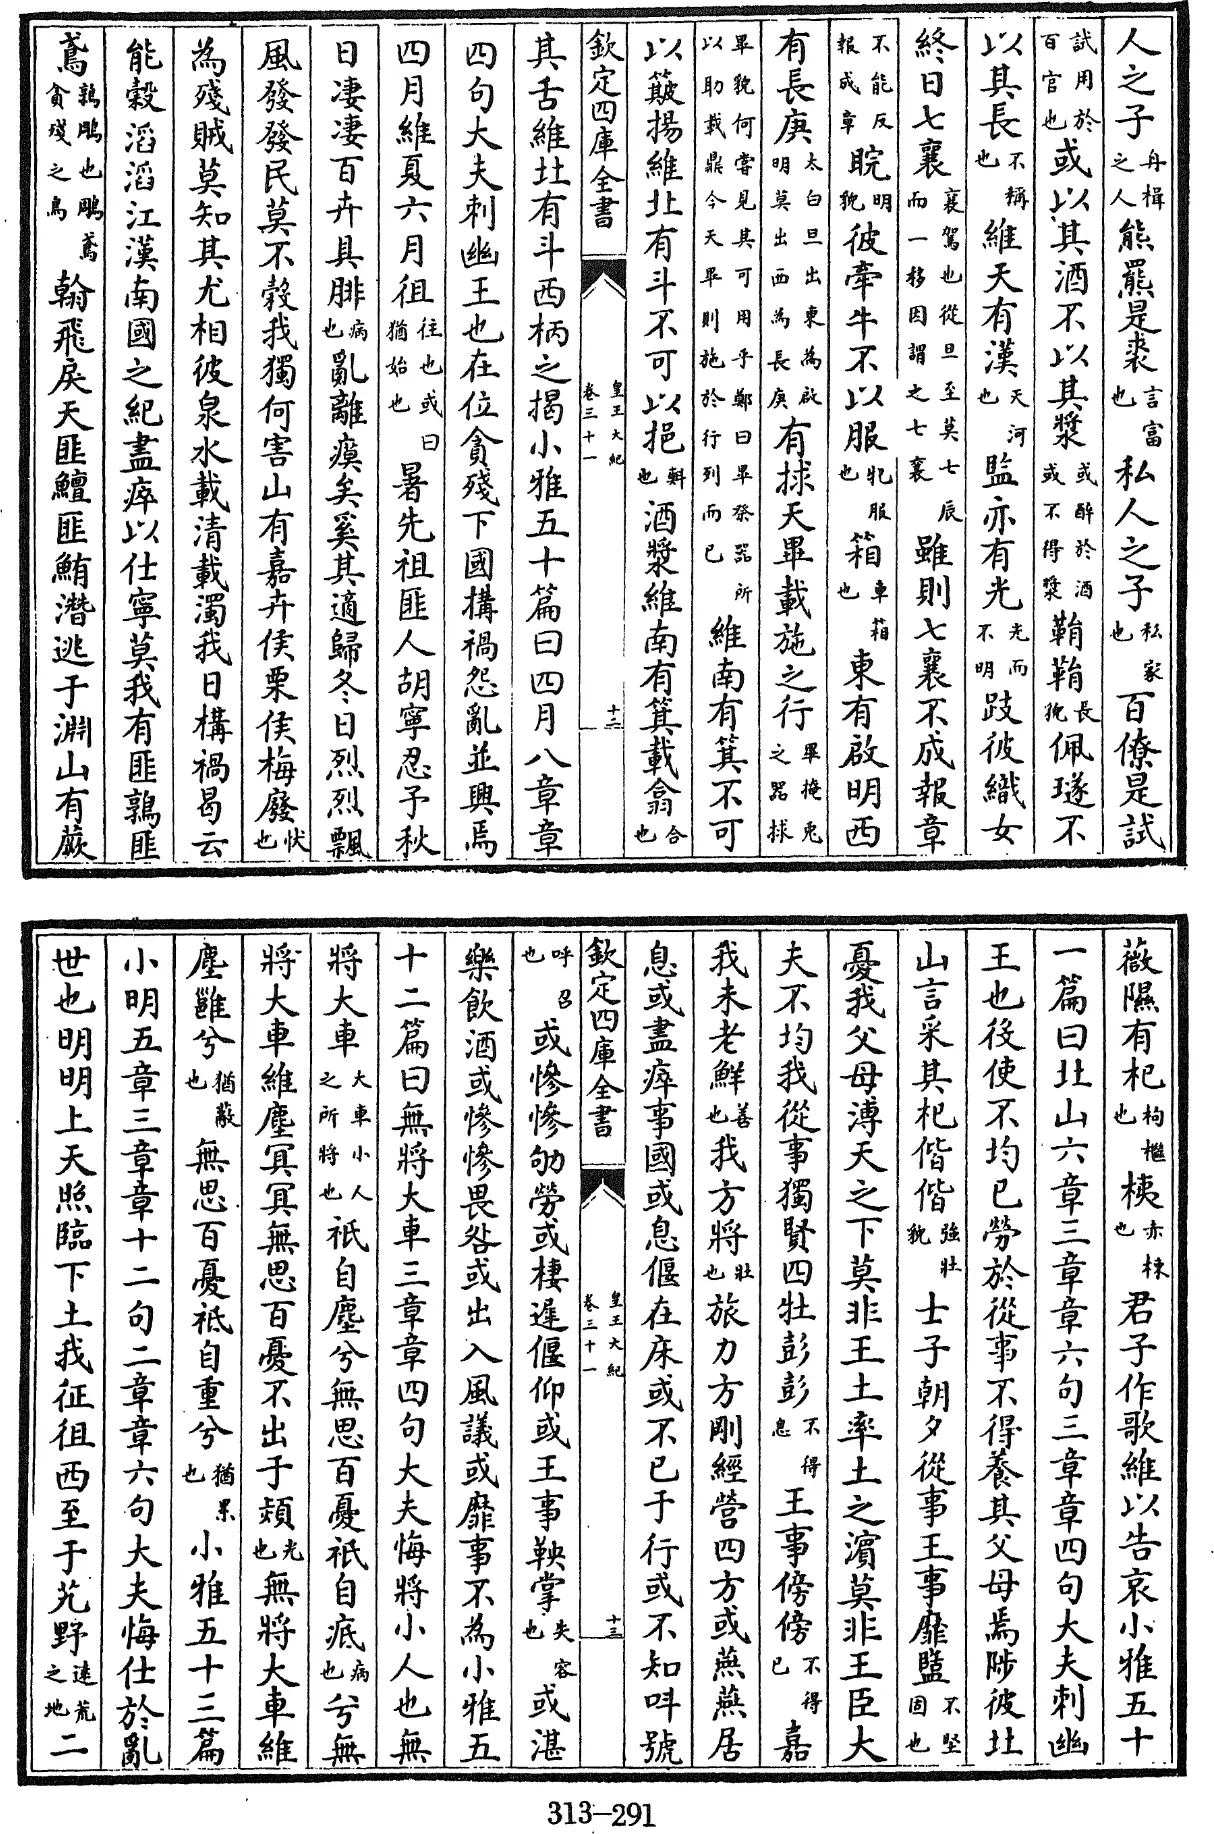 人之子舟楫之人熊羆是裘言富也私人之子私家也百僚是試
試用於百官也或以其酒不以其漿或醉於酒或不得漿鞙鞙長貌佩璲不
以其長不稱也維天有漢天河也監亦有光光而不明跂彼織女
終日七襄襄駕也從旦至莫七辰而一移因謂之七襄雖則七襄不成報章
不能反報成章睆明貌彼牽牛不以服牝服也箱車箱也東有啟明西
有長庚太白旦出東為啟明莫出西為長庚有捄天畢載施之行畢掩兎之器捄
畢貌何嘗見其可用乎鄭曰畢祭器所以助載鼎今天畢則施於行列而已維南有箕不可
以簸揚維北有斗不可以挹㪺也酒漿維南有箕載翕合也
欽定四庫全書
皇王大紀
卷三十一
十二
其舌維北有斗西柄之揭小雅五十篇曰四月八章章
四句大夫刺幽王也在位貪殘下國構禍怨亂並興焉
四月維夏六月徂往也或曰猶始也暑先祖匪人胡寧忍予秋
日凄凄百卉具腓病也亂離瘼矣奚其適歸冬日烈烈飄
風發發民莫不糓我獨何害山有嘉卉侯栗侯梅廢忕也
為殘賊莫知其尤相彼泉水載清載濁我日構禍曷云
能穀滔滔江漢南國之紀盡瘁以仕寧莫我有匪鶉匪
鳶鶉鵰也鵰鳶貪殘之鳥翰飛戾天匪鱣匪鮪潛逃于淵山有蕨
薇隰有杞枸檵也桋赤楝也君子作歌維以告哀小雅五十
一篇曰北山六章三章章六句三章章四句大夫刺幽
王也役使不均已勞於從事不得養其父母焉陟彼北
山言采其杞偕偕強壯貌士子朝夕從事王事靡盬不堅固也
憂我父母溥天之下莫非王土率土之濱莫非王臣大
夫不均我從事獨賢四牡彭彭不得息王事傍傍不得已嘉
我未老鮮善也我方將壯也旅力方剛經營四方或燕燕居
息或盡瘁事國或息偃在床或不已于行或不知叫號
欽定四庫全書
皇王大紀
卷三十一
十三
呼召也或慘慘劬勞或棲遲偃仰或王事鞅掌失容也或湛
樂飲酒或慘慘畏咎或出入風議或靡事不為小雅五
十二篇曰無將大車三章章四句大夫悔將小人也無
將大車大車小人之所將也祇自塵兮無思百憂祇自疧病也兮無
將大車維塵冥冥無思百憂不出于熲光也無將大車維
塵雝兮猶蔽也無思百憂祗自重兮猶累也小雅五十三篇
小明五章三章章十二句二章章六句大夫悔仕於亂
世也明明上天照臨下土我征徂西至于艽野遠荒之地二
313—291